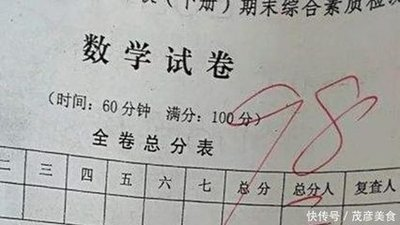 (下册)期末综合素质检
数学试卷
(时间:60分钟 满分:100分)
98
全卷总分表
二 三 四 五 六 七 总分 总分人 复查人
快传号/茂彦美食